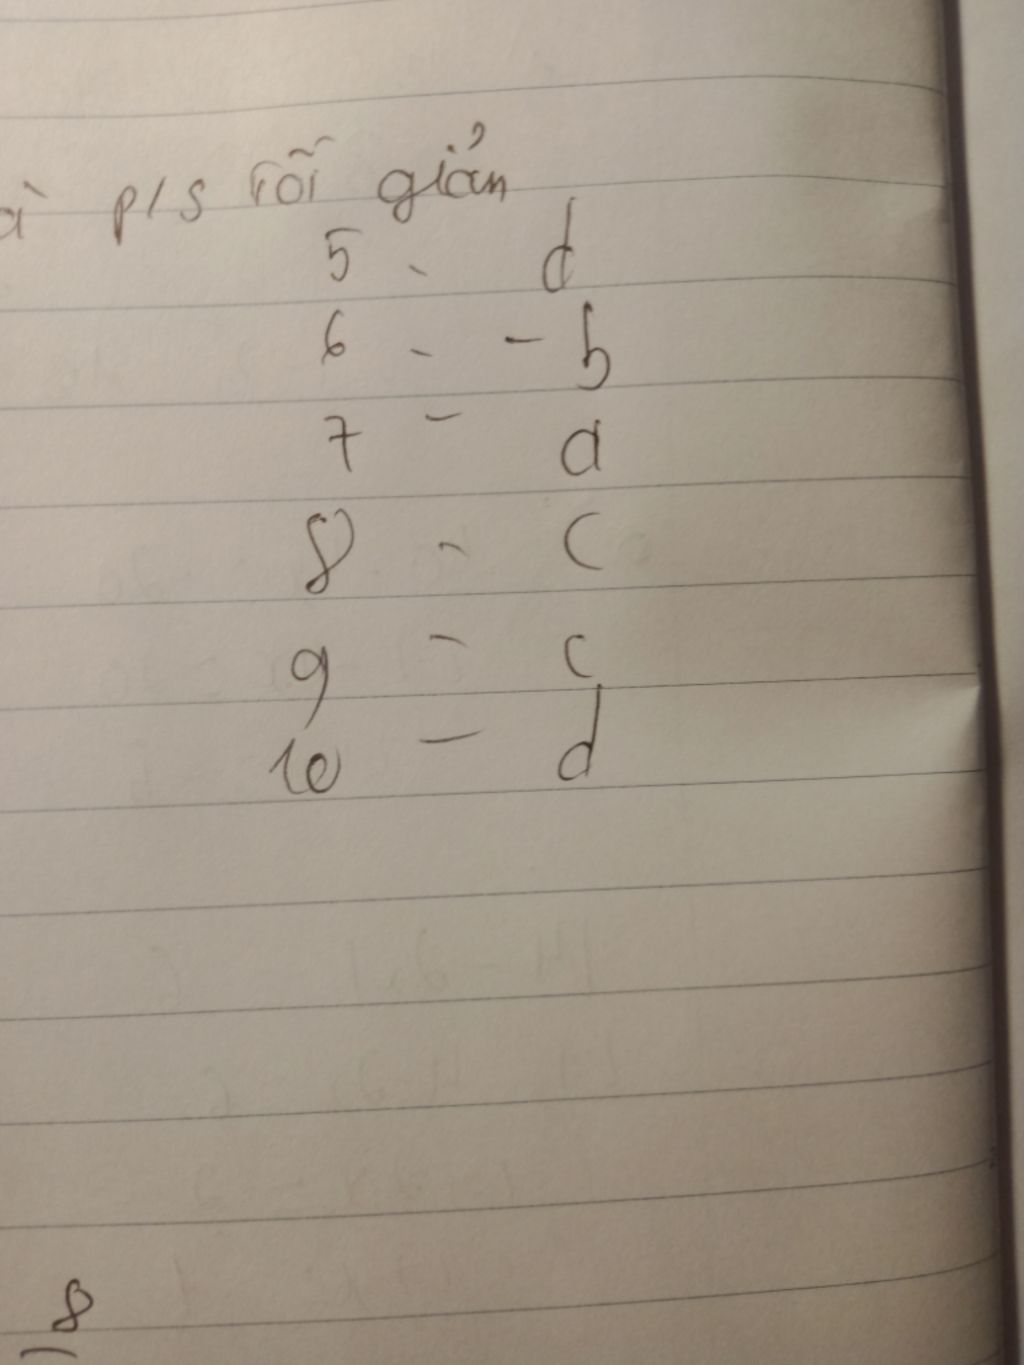 à p/s tối giản
5 - d
6 - - b
7 - a
8 - c
9 - c
10 - d
8